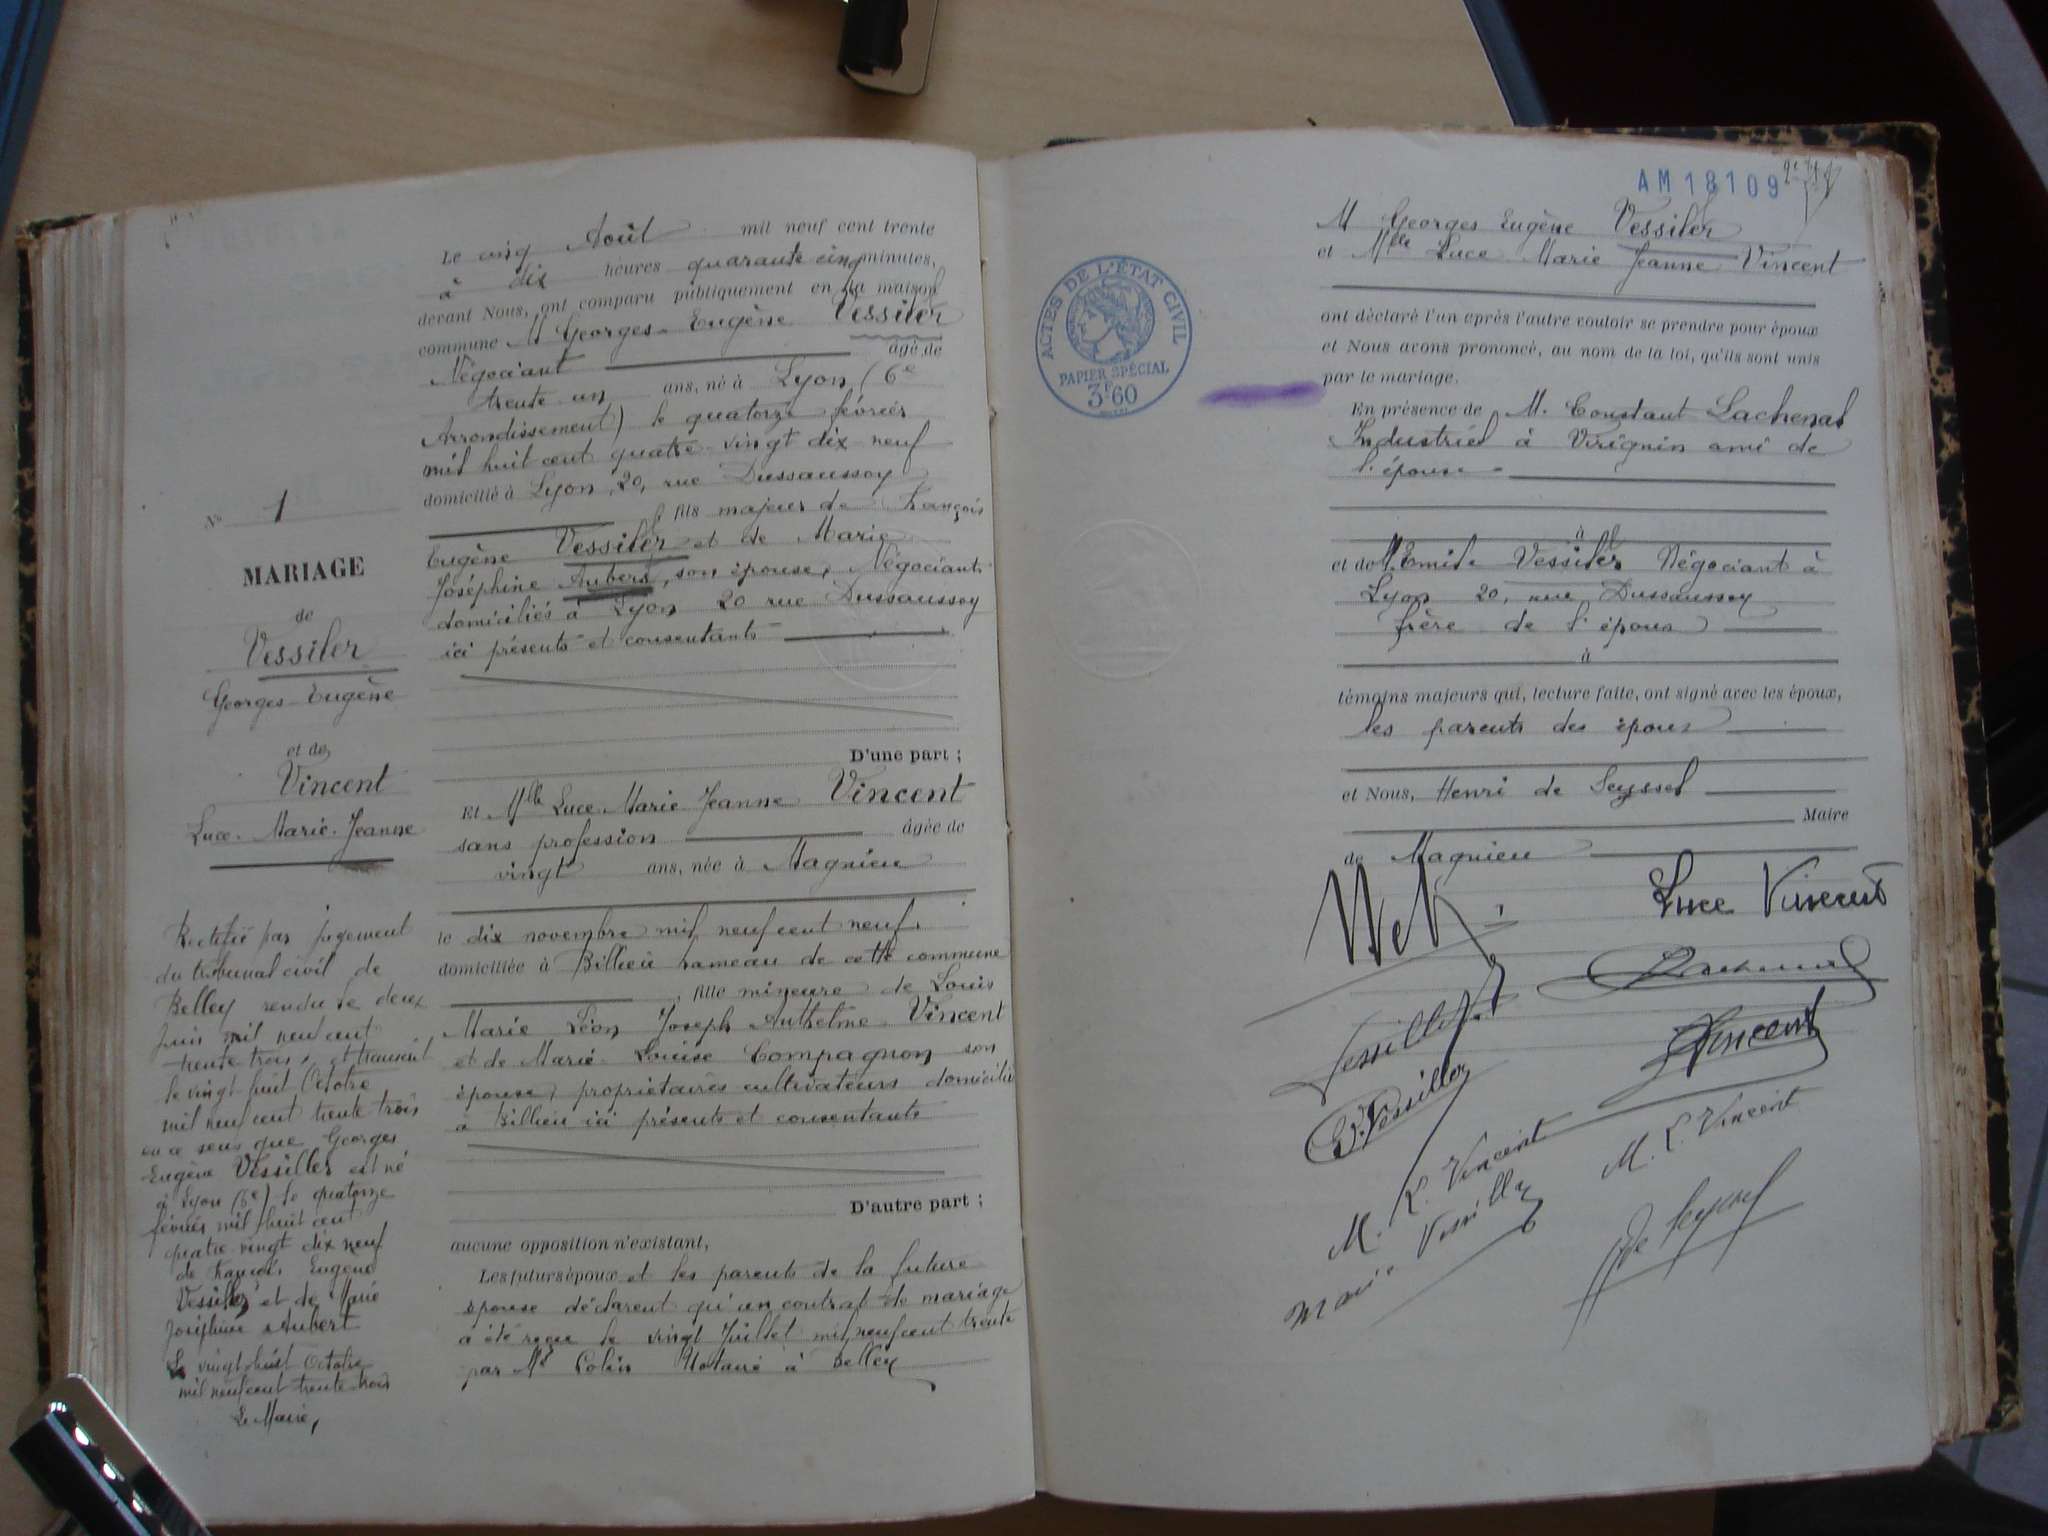 Le cinq Août mil neuf cent trente
à dix heures quarante cinq minutes,
devant Nous, ont comparu publiquement en la maison
commune M Georges-Eugène Vessiler
Négociant âgé de
trente un ans, né à Lyon (6e
Arrondissement) le quatorze février
mil huit cent quatre-vingt dix neuf
domicilié à Lyon, 20, rue Dussaussoy
, fils majeur de François
Eugène Vessiler et de Marie
Joséphine Aubert, son épouse, Négociants
domiciliés à Lyon 20 rue Dussaussoy
ici présents et consentants
D'une part ;
Et Mlle Luce-Marie Jeanne VINCENT
sans profession âgée de
vingt ans, née à Magnieu
le dix novembre mil neuf cent neuf,
domiciliée à Billieu hameau de cette commune
, fille mineure de Louis
Marie Léon Joseph Anthelme Vincent
et de Marie Louise Compagnon son
épouse, propriétaires cultivateurs domiciliés
à Billieu ici présents et consentants
D'autre part ;
aucune opposition n'existant,
Les futurs époux et les parents de la future
épouse déclarent qu'un contrat de mariage
a été reçu le vingt Juillet mil neuf cent trente
par Me Colin Notaire à Belley
No 1
MARIAGE
de
Vessiler
Georges-Eugène
et de
Vincent
Luce-Marie-Jeanne
Rectifié par jugement
du tribunal civil de
Belley rendu le deux
Juin mil neuf cent
trente trois, et transcrit
le vingt huit Octobre
mil neuf cent trente trois
en ce sens que Georges
Eugène Vessiller est né
à Lyon (6e) le quatorze
février mil huit cent
quatre vingt dix neuf
de François Eugène
Vessiller et de Marie
Joséphine Aubert
Le vingt huit Octobre
mil neuf cent trente trois
Le Maire,
AM 18109
M Georges Eugène Vessiler
et Mlle Luce Marie Jeanne Vincent
ACTES DE L'ÉTAT CIVIL
PAPIER SPÉCIAL
3F60
ont déclaré l'un après l'autre vouloir se prendre pour époux
et Nous avons prononcé, au nom de la loi, qu'ils sont unis
par le mariage.
En présence de M. Constant Lachenal
Industriel à Virignin ami de
l'épouse
à
et de M. Emile Vessiler Négociant à
Lyon 20, rue Dussaussoy
frère de l'époux
à
témoins majeurs qui, lecture faite, ont signé avec les époux,
les parents des époux
et Nous, Henri de Seyssel
Maire
de Magnieu
Luce Vincent
Lachenal
Vessiller
Vincent
Vessiller
M. L. Vincent
M. L. Vincent
Marie Vessiller
de Seyssel